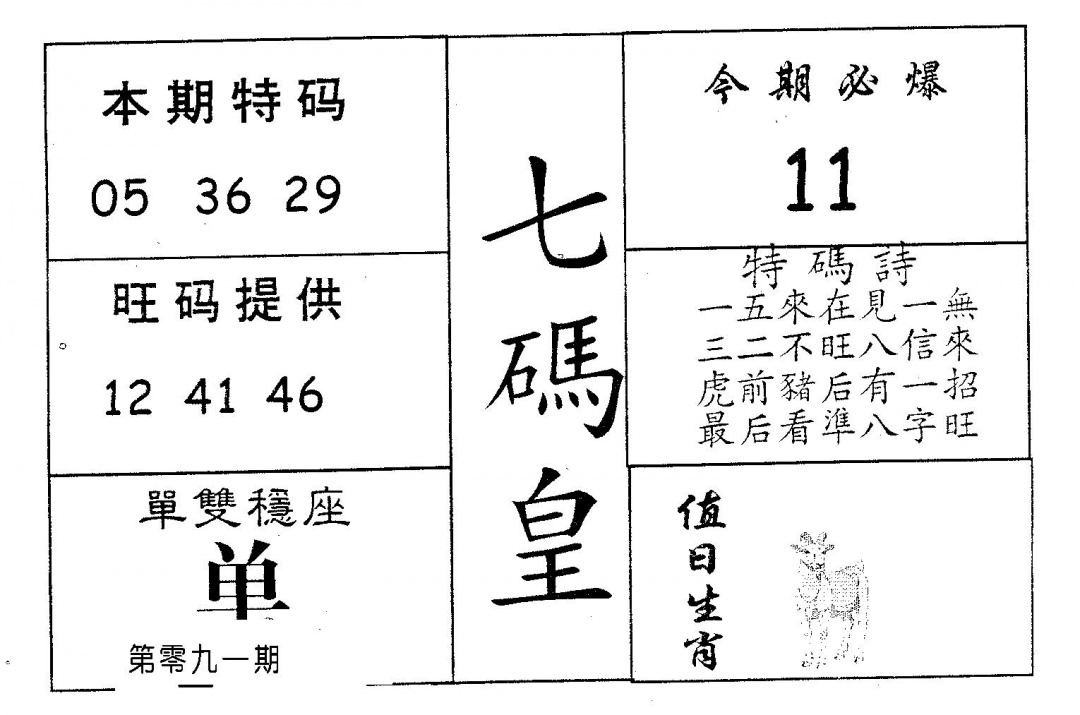 本期特码
05 36 29
旺码提供
12 41 46
單雙穩座
单
第零九一期
七碼皇
今期必爆
11
特碼詩
一五來在見一無
三二不旺八信來
虎前豬后有一招
最后看準八字旺
值日生肖